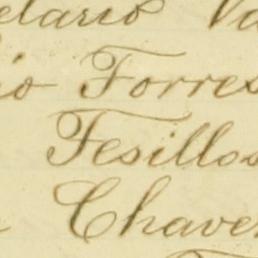 elario Va
io Torres
Tesillos
Chave